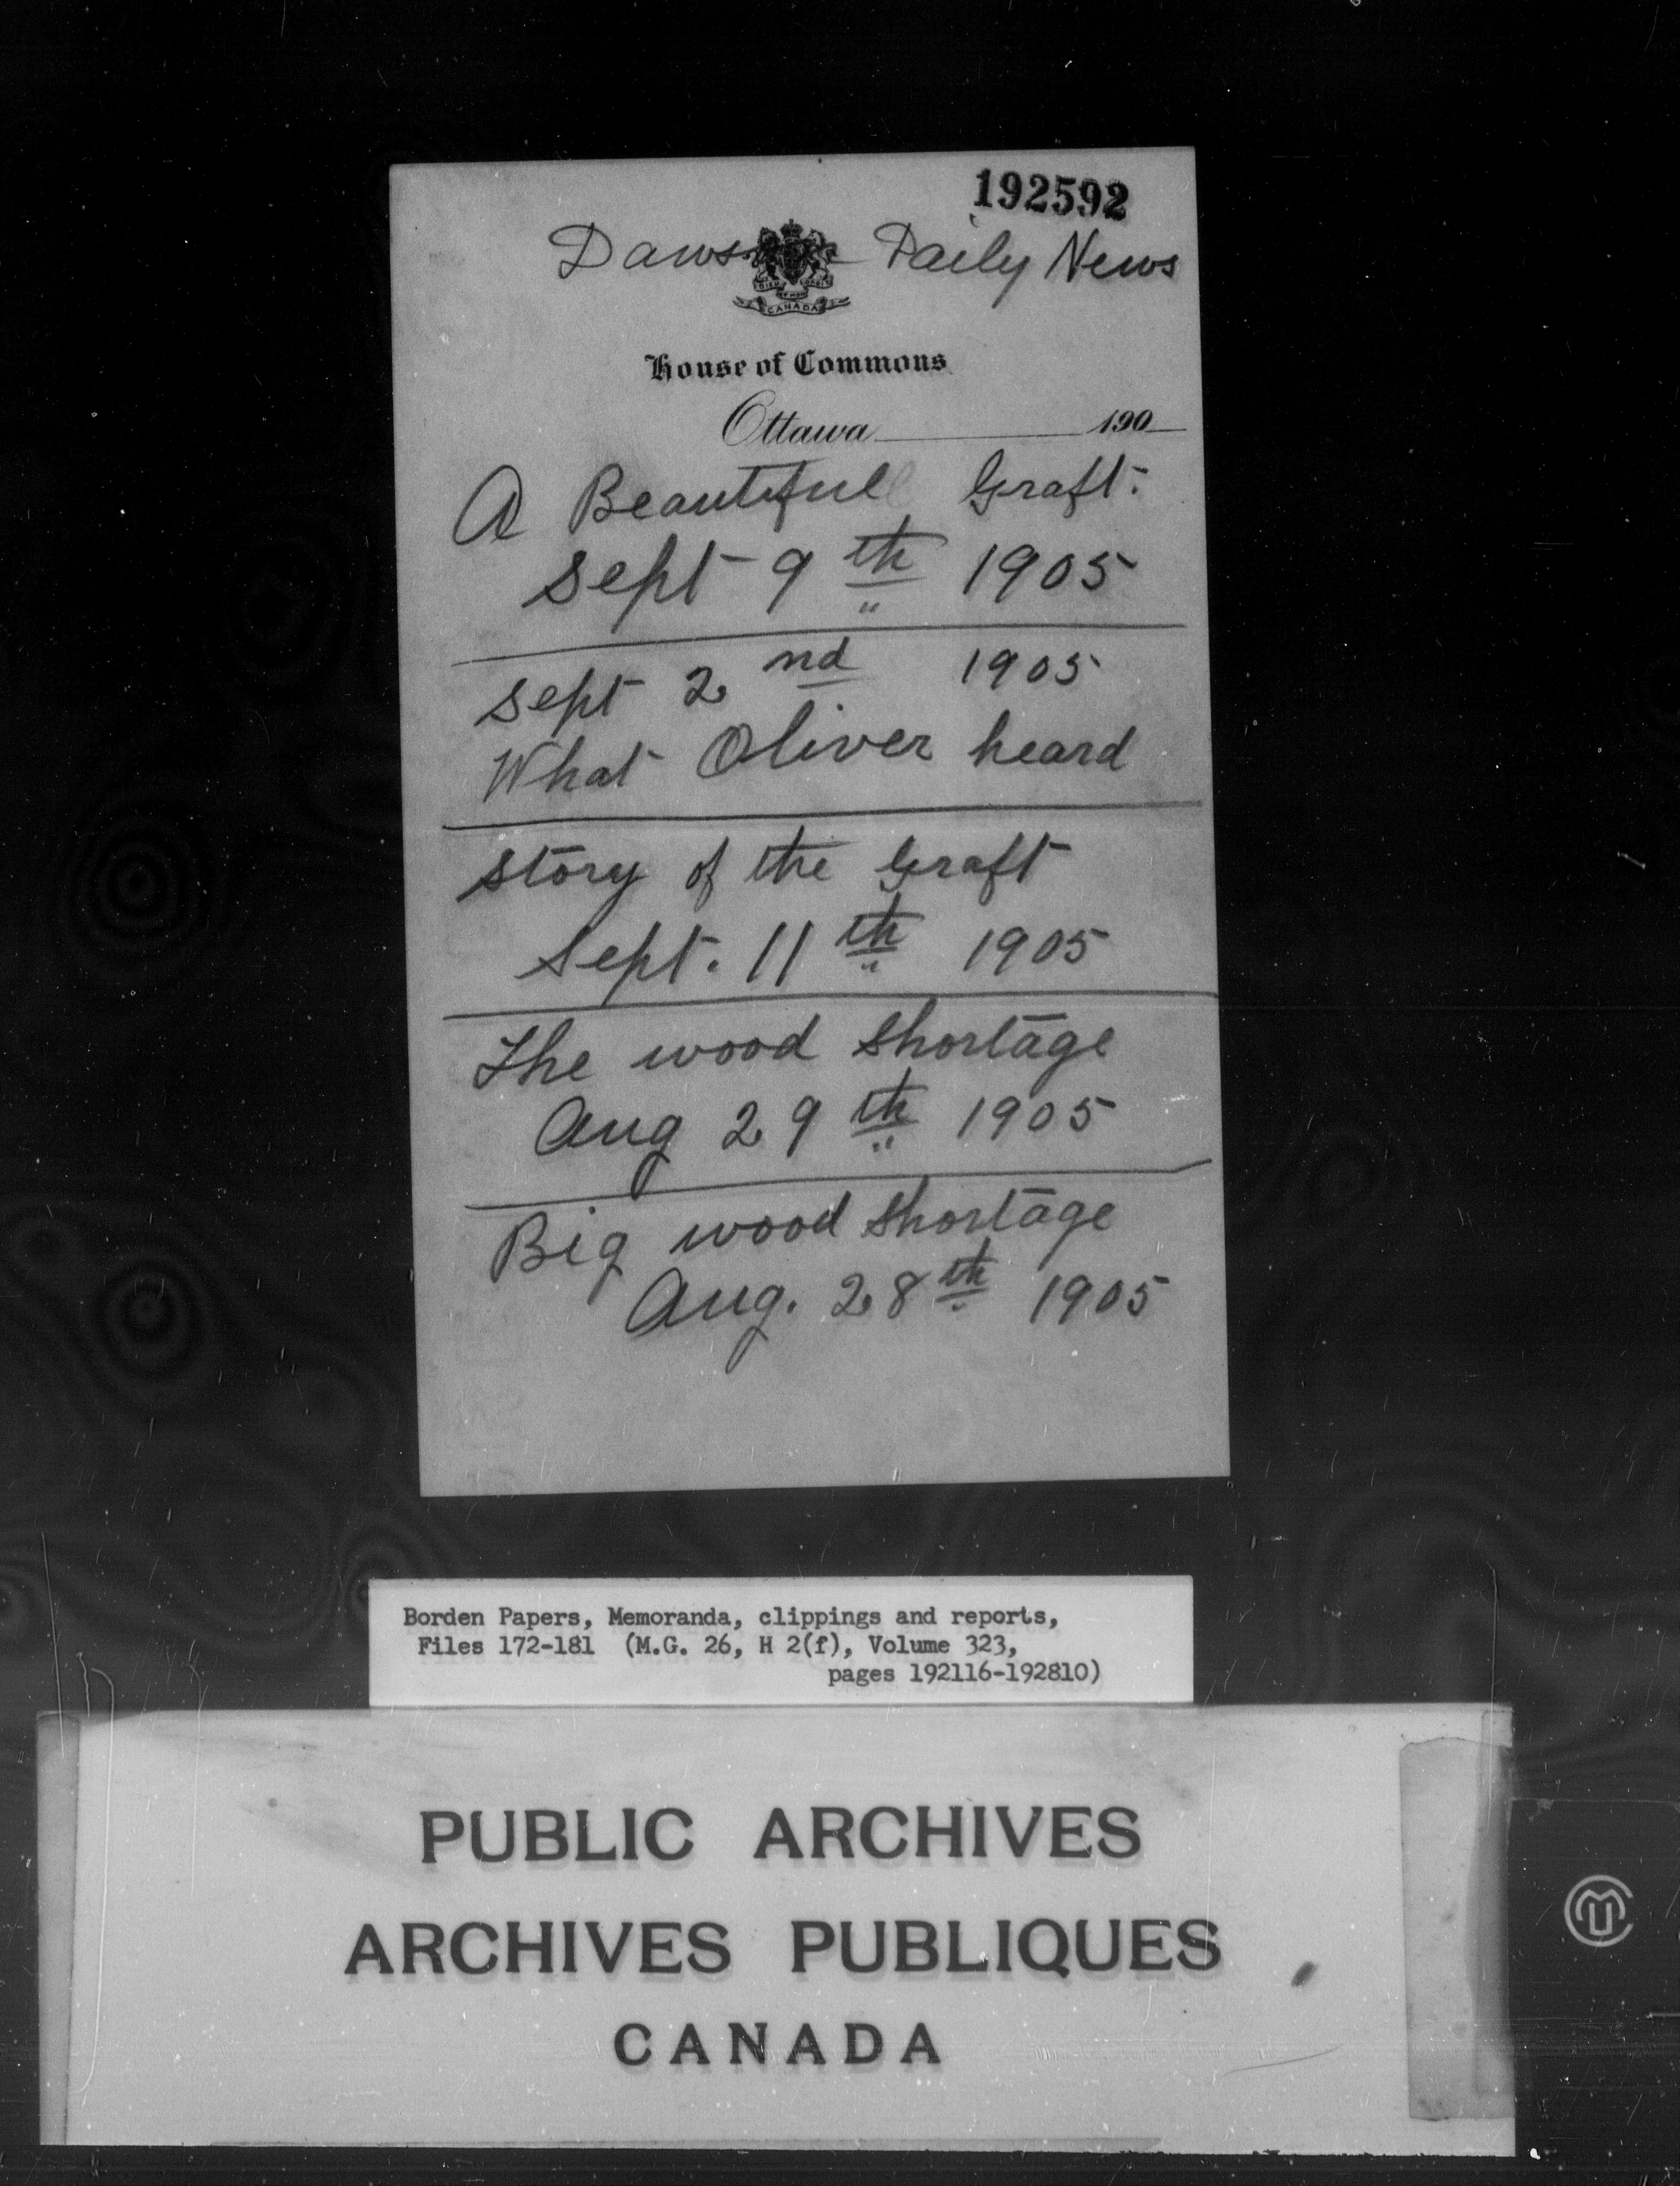 192592
Dawson Daily News
CANADA
House of Commons
Ottawa 190
A Beautiful Graft.
Sept 9th 1905
Sept 2nd 1905
What Oliver heard
Story of the Graft
Sept. 11th 1905
The wood shortage
Aug 29th 1905
Big wood shortage
Aug. 28th 1905
Borden Papers, Memoranda, clippings and reports,
Files 172-181 (M.G. 26, H 2(f), Volume 323,
pages 192116-192810)
PUBLIC ARCHIVES
ARCHIVES PUBLIQUES
CANADA